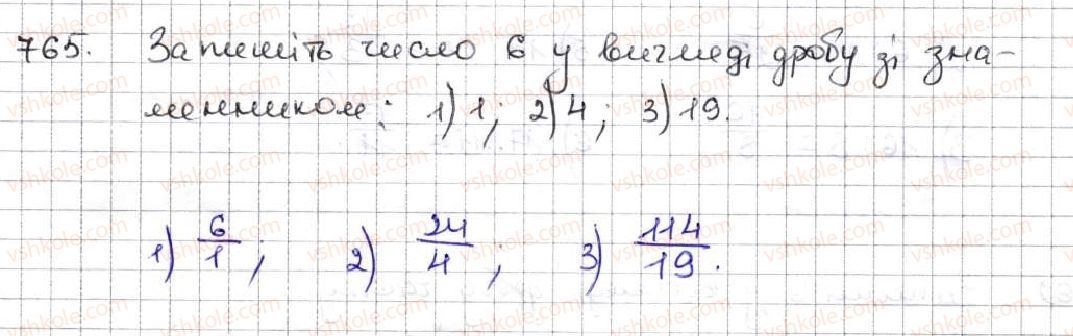 765. Запишіть число 6 у вигляді дробу зі зна-
менником: 1) 1; 2) 4; 3) 19.
1) 6/1; 2) 24/4; 3) 114/19.
vshkole.com